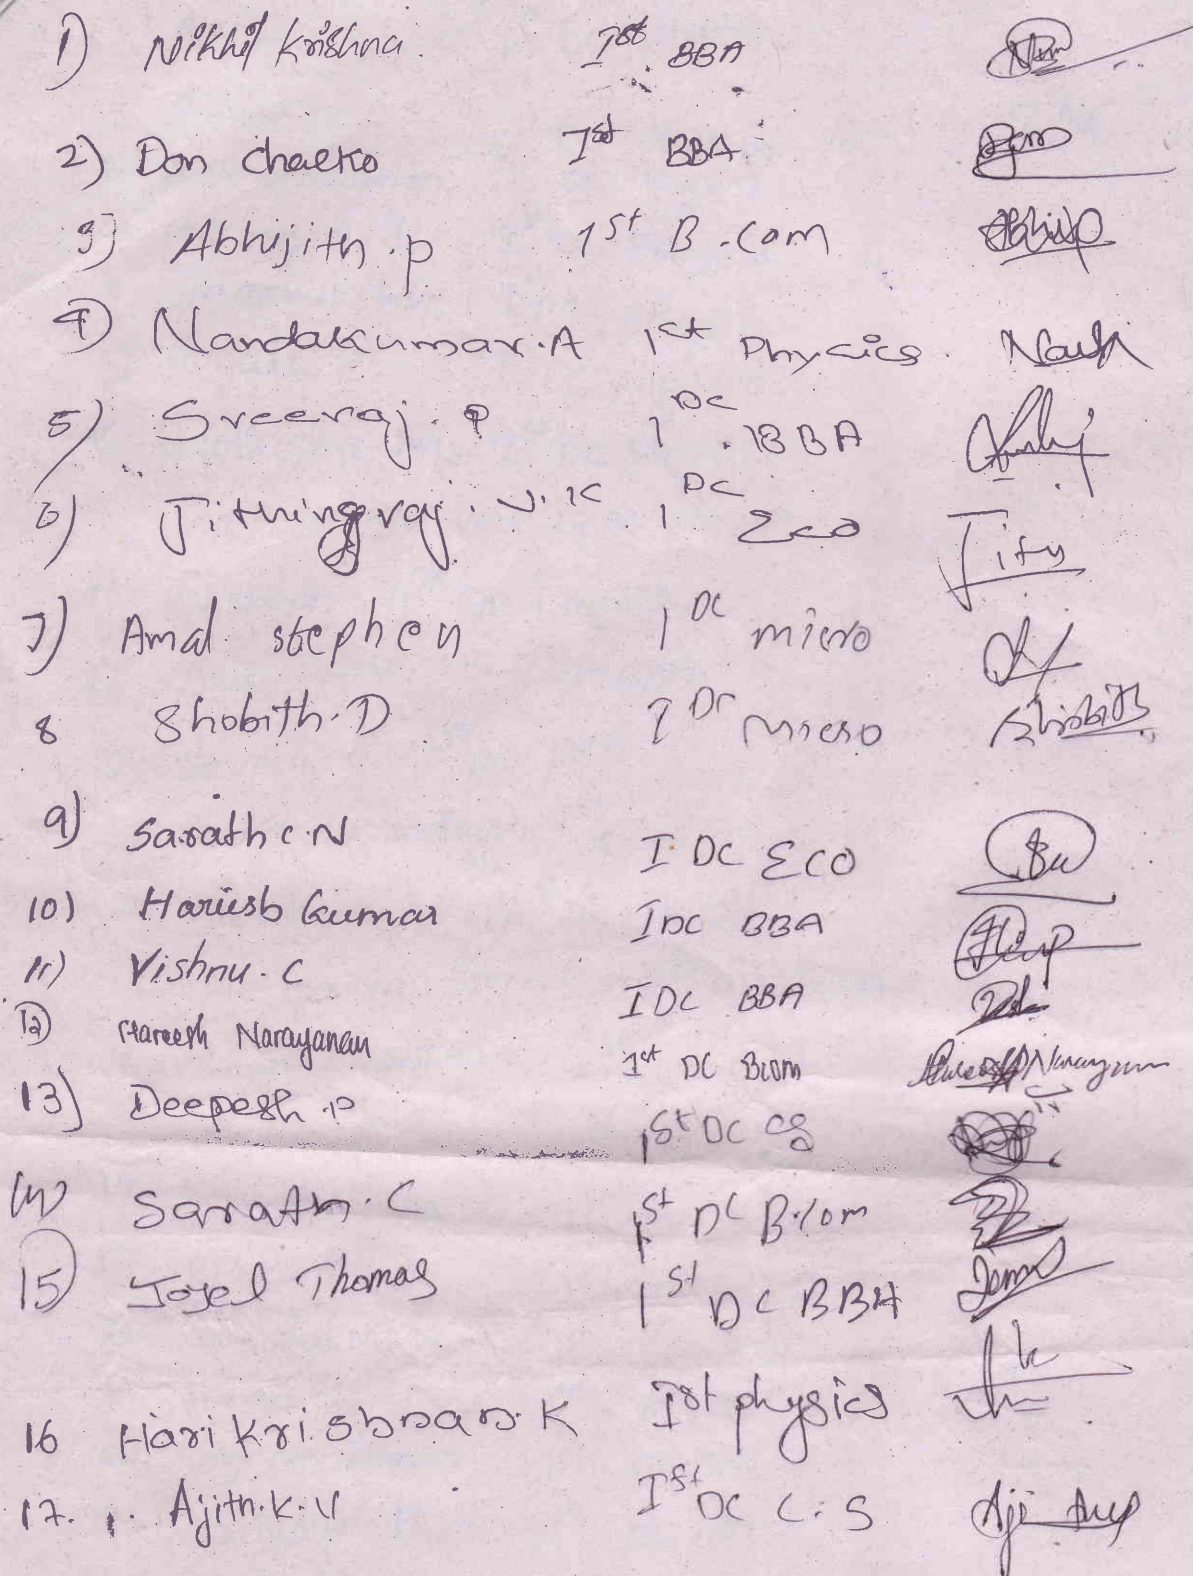 1) Nikhil Krishna. Ist BBA
2) Don Chacko Ist BBA
3) Abhijith.p 1st B.Com
4) Nandakumar.A 1st Physics. Nandh
5) Sreeraj.P 1 DC BBA
6) raj.V.K 1 DC Eco Jithu
7) Amal stephen 1 DC micro
8 Shobith.D I DC micro Shobith
9) Sarath C.N I DC ECO
10) Hariesh Kumar I DC BBA
11) Vishnu.C I DC BBA
12) Hareesh Narayanan 1st DC Bcom Hareesh Narayanan
13) Deepesh.P 1st DC CS
14) Sarath.C 1st DC B.Com
15) Joyel Thomas 1st DC BBA
16 Hari Krishnan.K Ist physics
17. Ajith.K.V Ist DC C.S